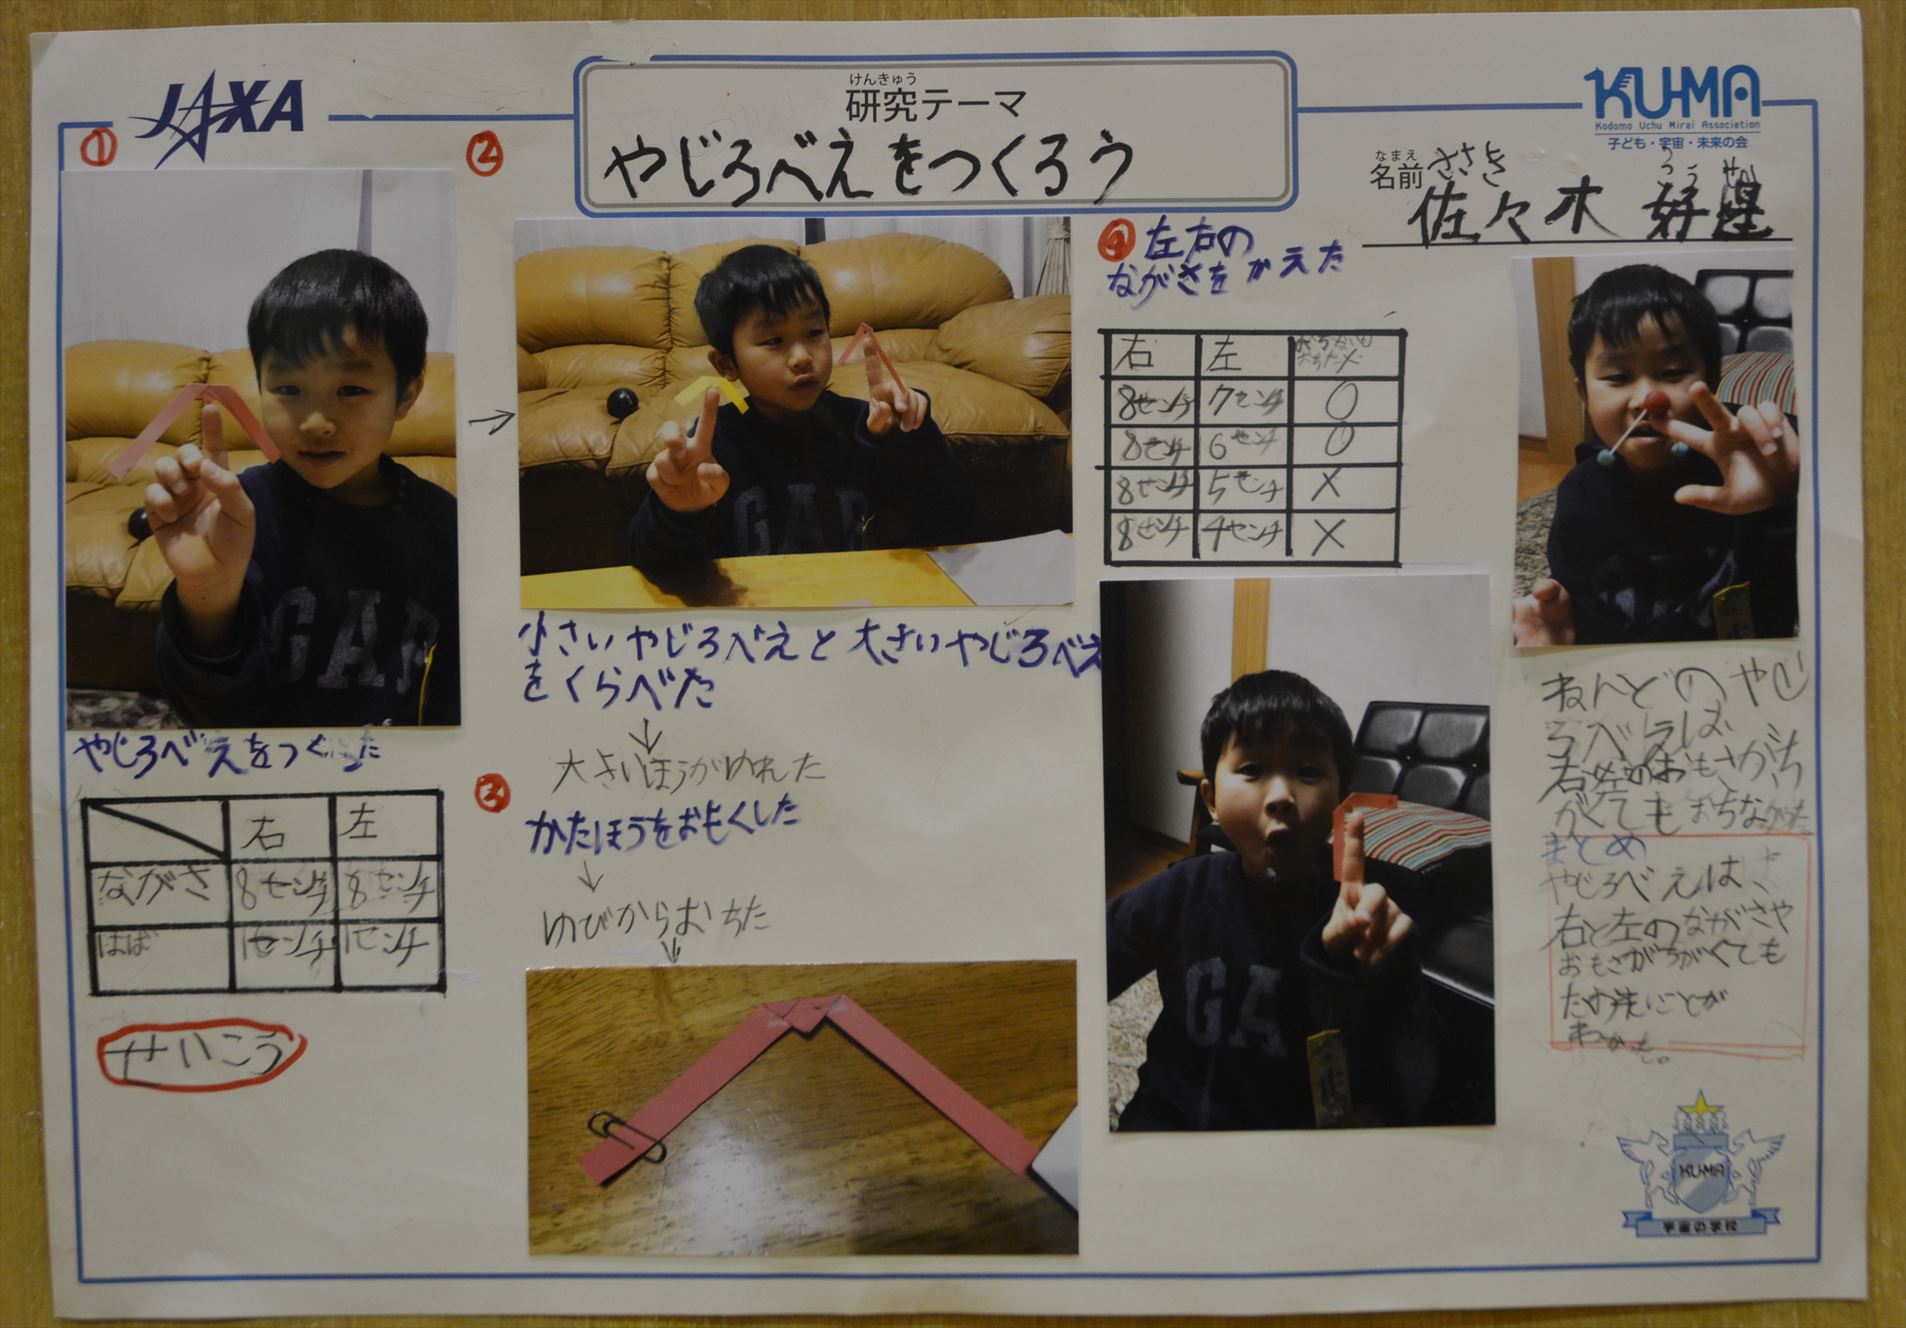 JAXA
けんきゅう
研究テーマ
やじろべえをつくろう
KU-MA
Kodomo Uchu Mirai Association
子ども・宇宙・未来の会
なまえ
名前
ささき
佐々木 好星
①
GAP
やじろべえをつくった
右 左
ながさ 8センチ 8センチ
はば 1センチ 1センチ
せいこう
②
GAP
小さいやじろべえと大きいやじろべえ
をくらべた
↓
大きいほうがゆれた
③
かたほうをおもくした
↓
ゆびからおちた
↓
④ 左右の
ながさをかえた
右 左
8センチ 7センチ ○
8センチ 6センチ ○
8センチ 5センチ ×
8センチ 4センチ ×
GA
ねんどのやじ
ろべえは
右左のおもさがち
がくてもおちなかった
まとめ
やじろべえは、
右と左のながさや
おもさがちがくても
ことが
わかった。
KU-MA
宇宙の学校